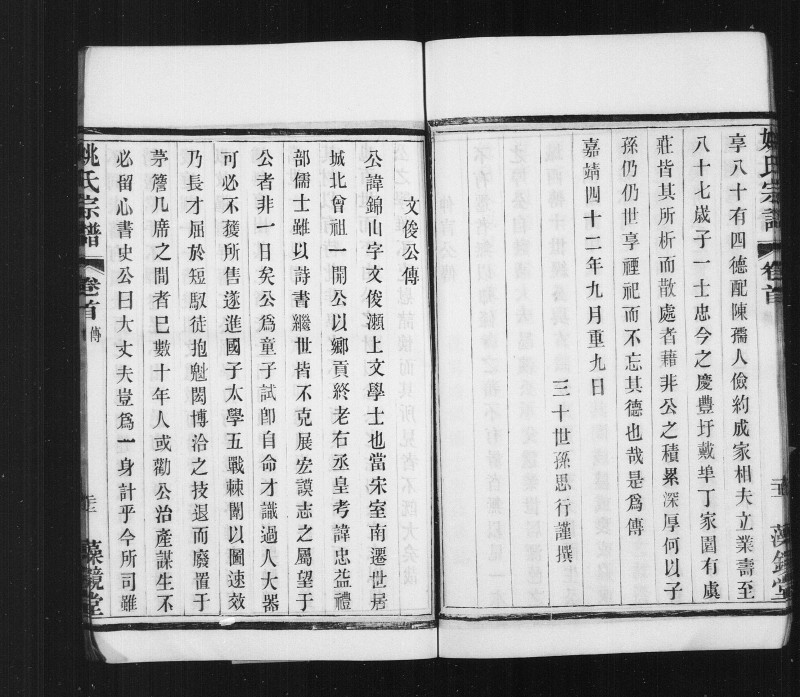 姚氏宗譜 卷首
享八十有四德配陳孺人儉約成家相夫立業壽至
八十七歲子一士忠今之慶豐圩戴埠丁家園有虞
莊皆其所析而散處者藉非公之積累深厚何以子
孫仍仍世享禋祀而不忘其德也哉是爲傳
三十世孫思行謹撰
嘉靖四十二年九月重九日
文俊公傳
公諱錦山字文俊瀨上文學士也當宋室南遷世居
城北曾祖一開公以鄉貢終老右丞皇考諱忠益禮
部儒士雖以詩書繼世皆不克展宏謨志之屬望于
公者非一日矣公爲童子試卽自命才識過人大器
可必不獲所售遂進國子太學五戰棘闈以圖速效
乃長才屈於短馭徒抱魁閎博洽之技退而廢置于
茅簷几席之間者巳數十年人或勸公治產謀生不
必留心書史公曰大丈夫豈爲一身計乎今所司雖
姚氏宗譜 卷首 傳 藻鏡堂